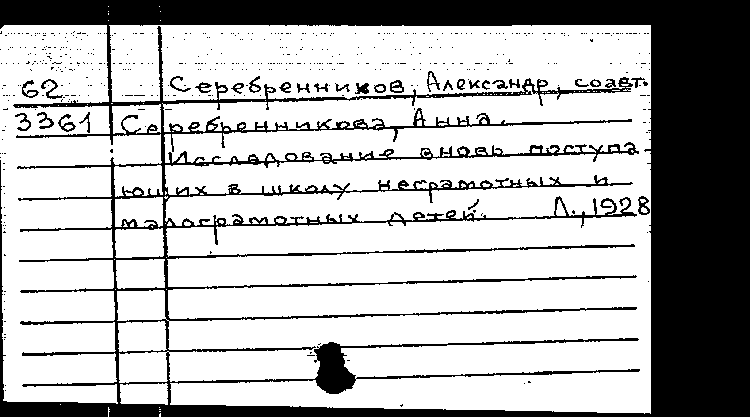 62 Серебренников, Александр, соавт.
3361 Серебренникова, Анна.
Исследование вновь поступа-
ющих в школу неграмотных и
малограмотных детей. Л., 1928